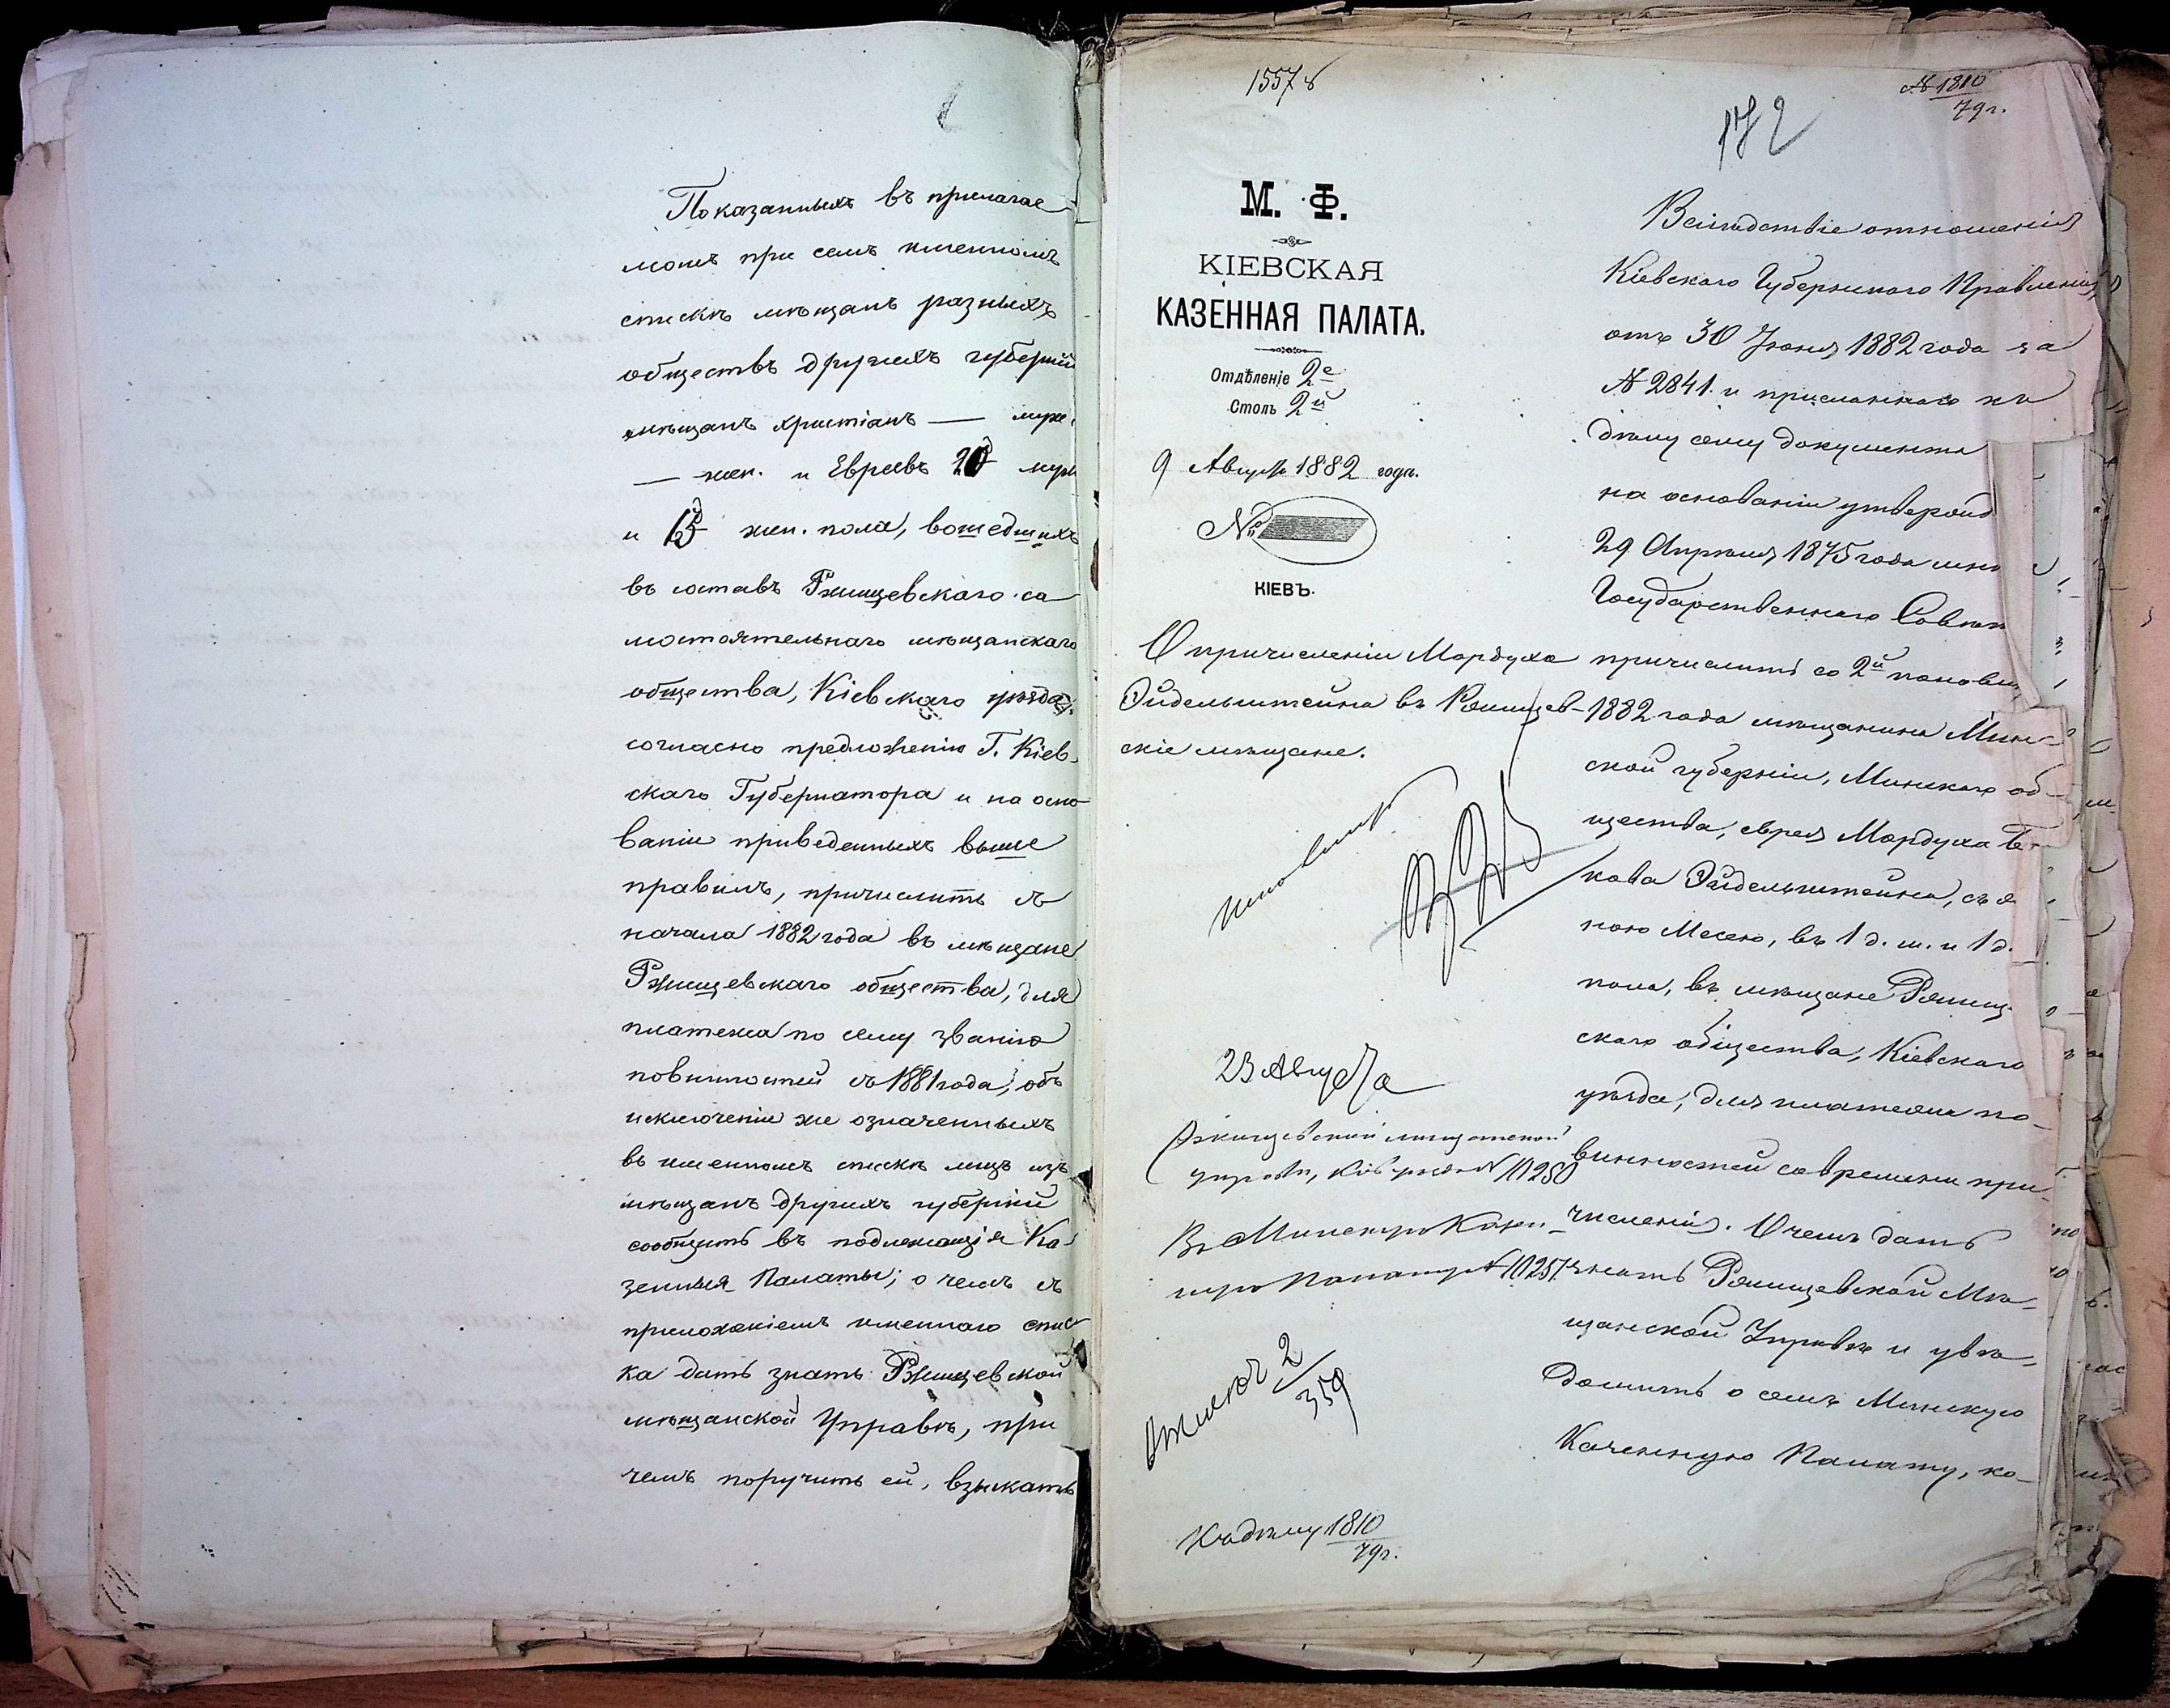 Показанныхъ въ прилагае
момъ при семъ именномъ
спискѣ мѣщанъ разныхъ
обществъ другихъ губерній
мѣщанъ христіанъ — муж.
— жен. и Евреевъ 20 муж
и 15 жен. пола, вошедшихъ
въ составъ Ржищевскаго са
мостоятельнаго мѣщанскаго
общества, Кіевскаго уѣзда,
согласно предложенію Г. Кіев
скаго Губернатора и на осно
ваніи приведенныхъ выше
правилъ, причислить съ
начала 1882 года въ мѣщане
Ржищевскаго общества, для
платежа по сему званію
повинностей съ 1881 года; объ
исключеніи же означенныхъ
въ именномъ спискѣ лицъ изъ
мѣщанъ другихъ губерній
сообщить въ подлежащія Ка
зенныя Палаты; о чемъ съ
приложеніемъ именнаго спис
ка дать знать Ржищевской
мѣщанской Управѣ, при
чемъ поручить ей, взыкать
1557
№ 1810
79 г.
172
М. Ф.
КІЕВСКАЯ
КАЗЕННАЯ ПАЛАТА.
Отдѣленіе 2е
Столъ 2й
9 Августа 1882 года.
№
КІЕВЪ.
О причисленіи Мордуха
Эйдельштейна въ Ржищев-
скіе мѣщане.
23 Августа
Ржищевской мѣщанской
управѣ, Кіев. уѣзда № 10250
Въ Минскую Казен-
ную Палату № 10251.
2
359
Къ дѣлу 1810
79 г.
Вслѣдствіе отношенія
Кіевскаго Губернскаго Правленія
отъ 30 Іюня 1882 года за
№ 2841 и присланнаго къ
дѣлу сему документа
на основаніи утвержд
29 Апрѣля 1875 года мнѣ
Государственнаго Совѣт
причислить со 2й полови
1882 года мѣщанина Мин-
ской губерніи, Минскаго об-
щества, еврея Мордуха
кова Эйдельштейна, съ
ною Месею, въ 1 д. м. и 1 д.
пола, въ мѣщане Ржищ
скаго общества, Кіевскаго
уѣзда, для платежа по-
винностей со времени при-
численія. О чемъ дать
знать Ржищевской Мѣ-
щанской Управѣ и увѣ-
домить о семъ Минскую
Казенную Палату, ко-